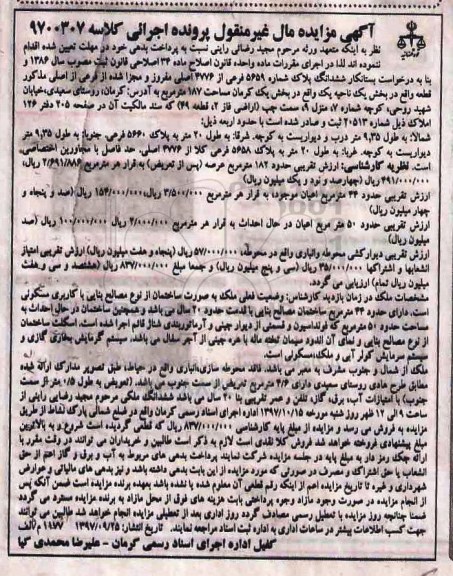 آگهی مزایده مال غیرمنقول پرونده اجرائی کلاسه ۹۷۰۰۳۰۷
نظر به اینکه متعهد ورثه مرحوم مجید رضائی راینی نسبت به پرداخت بدهی خود در مهلت تعیین شده اقدام
ننموده اند لذا در اجرای مقررات ماده واحده قانون اصلاح ماده ۳۴ اصلاحی قانون ثبت مصوب سال ۱۳۸۶ و
بنا به درخواست بستانکار ششدانگ پلاک شماره ۵۶۵۹ فرعی از ۳۷۷۶ اصلی مفروز و مجزا شده از فرعی از اصلی مذکور
قطعه واقع در بخش یک ناحیه یک واقع در بخش یک کرمان مساحت ۱۸۷ مترمربع به آدرس: کرمان، روستای سعیدی،خیابان
شهید روحی، کوچه شماره ۷، منزل ۹، سمت چپ (اراضی فاز ۲، قطعه ۴۹) که سند مالکیت آن در صفحه ۲۰۵ دفتر ۱۲۶
املاک ذیل شماره ۲۰۵۱۳ ثبت و صادر شده است با حدود اربعه ذیل:
شمالا: به طول ۹٫۳۵ متر درب و دیواریست به کوچه. شرقا: به طول ۲۰ متر به پلاک ۵۶۶۰ فرعی. جنوبا: به طول ۹٫۳۵ متر
دیواریست به کوچه. غربا: به طول ۲۰ متر به پلاک ۵۶۵۸ فرعی کلا از ۳۷۷۶ اصلی. حد فاصل با مجاورین اختصاصی
است. نظریه کارشناسی: ارزش تقریبی حدود ۱۸۲ مترمربع عرصه (پس از تعریض) به قرار هر مترمربع ۲/۶۹۱/۸۸۶ ریال،
۴۹۱/۰۰۰/۰۰۰ ریال (چهارصد و نود و یک میلیون ریال)
ارزش تقریبی حدود ۴۴ مترمربع اعیان موجود، به قرار هر مترمربع ۳/۵۰۰/۰۰۰ ریال، ۱۵۴/۰۰۰/۰۰۰ ریال (صد و پنجاه و
چهار میلیون ریال)
ارزش تقریبی حدود ۵۰ متر مربع اعیان در حال احداث به قرار هر مترمربع ۲/۰۰۰/۰۰۰ ریال، ۱۰۰/۰۰۰/۰۰۰ ریال (صد
میلیون ریال)
ارزش تقریبی دیوارکشی محوطه وانباری واقع در محوطه، ۵۷/۰۰۰/۰۰۰ ریال (پنجاه و هفت میلیون ریال) ارزش تقریبی امتیاز
انشعابها و اشتراکها ۳۵/۰۰۰/۰۰۰ ریال (سی و پنج میلیون ریال) و جمعا مبلغ ۸۳۷/۰۰۰/۰۰۰ ریال (هشتصد و سی و هفت
میلیون ریال تمام) ارزیابی می گردد.
مشخصات ملک در زمان بازدید کارشناس: وضعیت فعلی ملک به صورت ساختمان از نوع مصالح بنایی با کاربری مسکونی
است. دارای حدود ۴۴ مترمربع ساختمان مصالح بنایی با قدمت حدود ۲۰ سال می باشد و همچنین ساختمان در حال احداث به
مساحت حدود ۵۰ مترمربع که فونداسیون و قسمتی از دیوار چینی و آرماتوربندی شناژ قائم اجرا شده است. اسکلت ساختمان
از نوع مصالح بنایی و نمای آن اندود سیمان تخته ماله با هره چینی از آجر سفال می باشد. سیستم گرمایش بخاری گازی و
سیستم سرمایش کولر آبی و ملک،مسکونی است.
ملک از شمال و جنوب مشرف به معبر می باشد. فاقد محوطه سازی،انباری واقع در حیاط، طبق تصویر مدارک ارائه شده
مطابق طرح هادی روستای سعیدی دارای ۴/۶ مترمربع تعریض از سمت جنوب می باشد. (تعریض به طول ۰/۵ متر از سمت
جنوب) با امتیازات آب، برق، گاز، تلفن و عمر تقریبی بنا ۲۰ سال می باشد ششدانگ ملکی مرحوم مجید رضایی راینی از
ساعت ۹ الی ۱۲ ظهر روز شنبه مورخه ۱۳۹۷/۱۰/۱۵ اداره اجرای اسناد رسمی کرمان واقع در ضلع شمالی پارک نشاط از طریق
مزایده به فروش می رسد و مزایده از مبلغ پایه کارشناسی ۸۳۷/۰۰۰/۰۰۰ ریال که قطعی گردیده است شروع و به بالاترین
مبلغ پیشنهادی فروخته خواهد شد فروش کلا نقدی است لازم به ذکر است طالبین و خریداران می توانند در وقت مقرر با
ارائه چک رمز دار به مبلغ پایه در جلسه مزایده شرکت نمایند پرداخت بدهی های مربوط به آب و برق و گاز اعم از حق
انشعاب یا حق اشتراک و مصرف در صورتی که مورد مزایده از این بابت بدهی داشته باشد و نیز بدهی های مالیاتی و عوارض
شهرداری و غیره تا تاریخ مزایده اعم از اینکه رقم قطعی آن معلوم شده یا نشده باشد بعهده برنده مزایده است ضمن آنکه پس
از انجام مزایده در صورت وجود مازاد وجوه پرداختی بابت هزینه های فوق از محل مازاد به برنده مزایده مسترد می گردد
ضمنا چنانچه روز مزایده با تعطیل رسمی مصادف گردد روز اداری بعد از تعطیلی مزایده انجام خواهد شد طالبین می توانند
جهت کسب اطلاعات بیشتر در ساعات اداری به اداره ثبت اسناد مراجعه نمایند. تاریخ انتشار: ۱۳۹۷/۰۹/۲۵ ۱۹۷۷ م/الف
کفیل اداره اجرای اسناد رسمی کرمان - علیرضا محمدی کیا